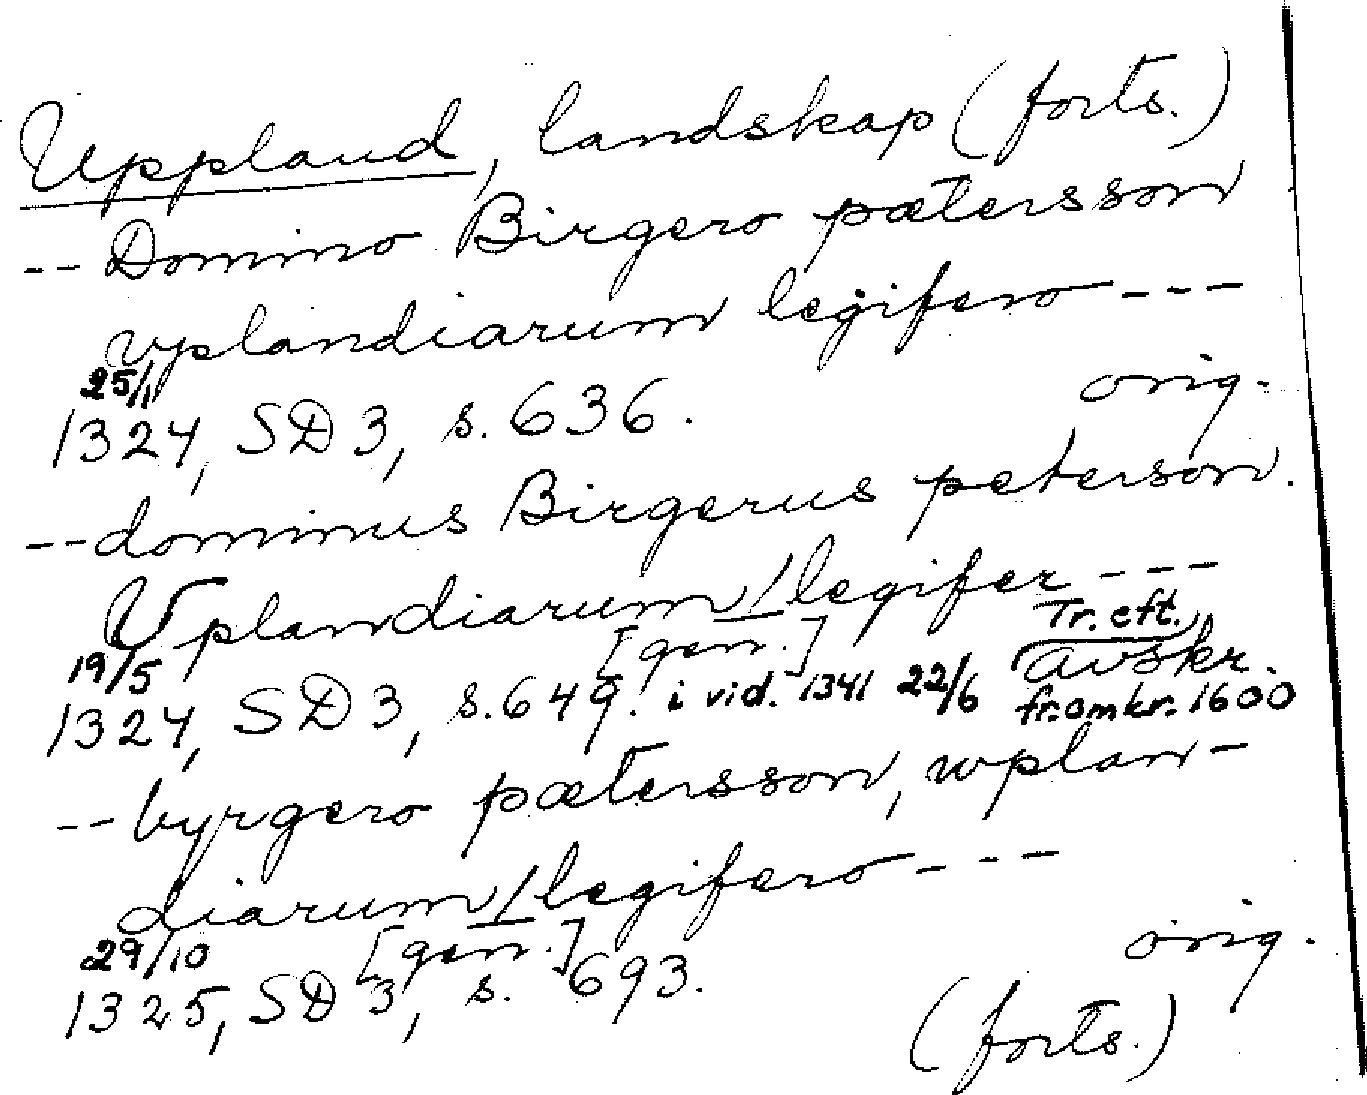 Uppland, landskap (forts.)
-- Domino Birgero pætersson
vplandiarum legifero ---
25/1 orig.
1324, SD 3, s. 636.
-- dominus Birgerus peterson.
Vplandiarum / legifer ---
19/5 [gen.] Tr. eft. avskr.
1324, SD 3, s. 649. i vid. 1341 22/6 fr. omkr. 1600
-- byrgero pætersson, wplan-
diarum / legifero ---
29/10 [gen.] orig.
1325, SD 3, s. 693.
(forts.)